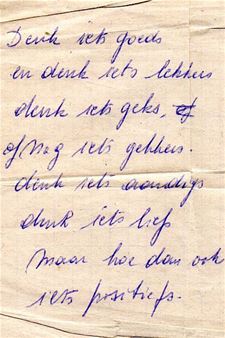 Denk iets goeds
en denk iets lekkers
denk iets geks, of
of nog iets gekkers.
denk iets aardigs
denk iets liefs
Maar hoe dan ook
iets positiefs.